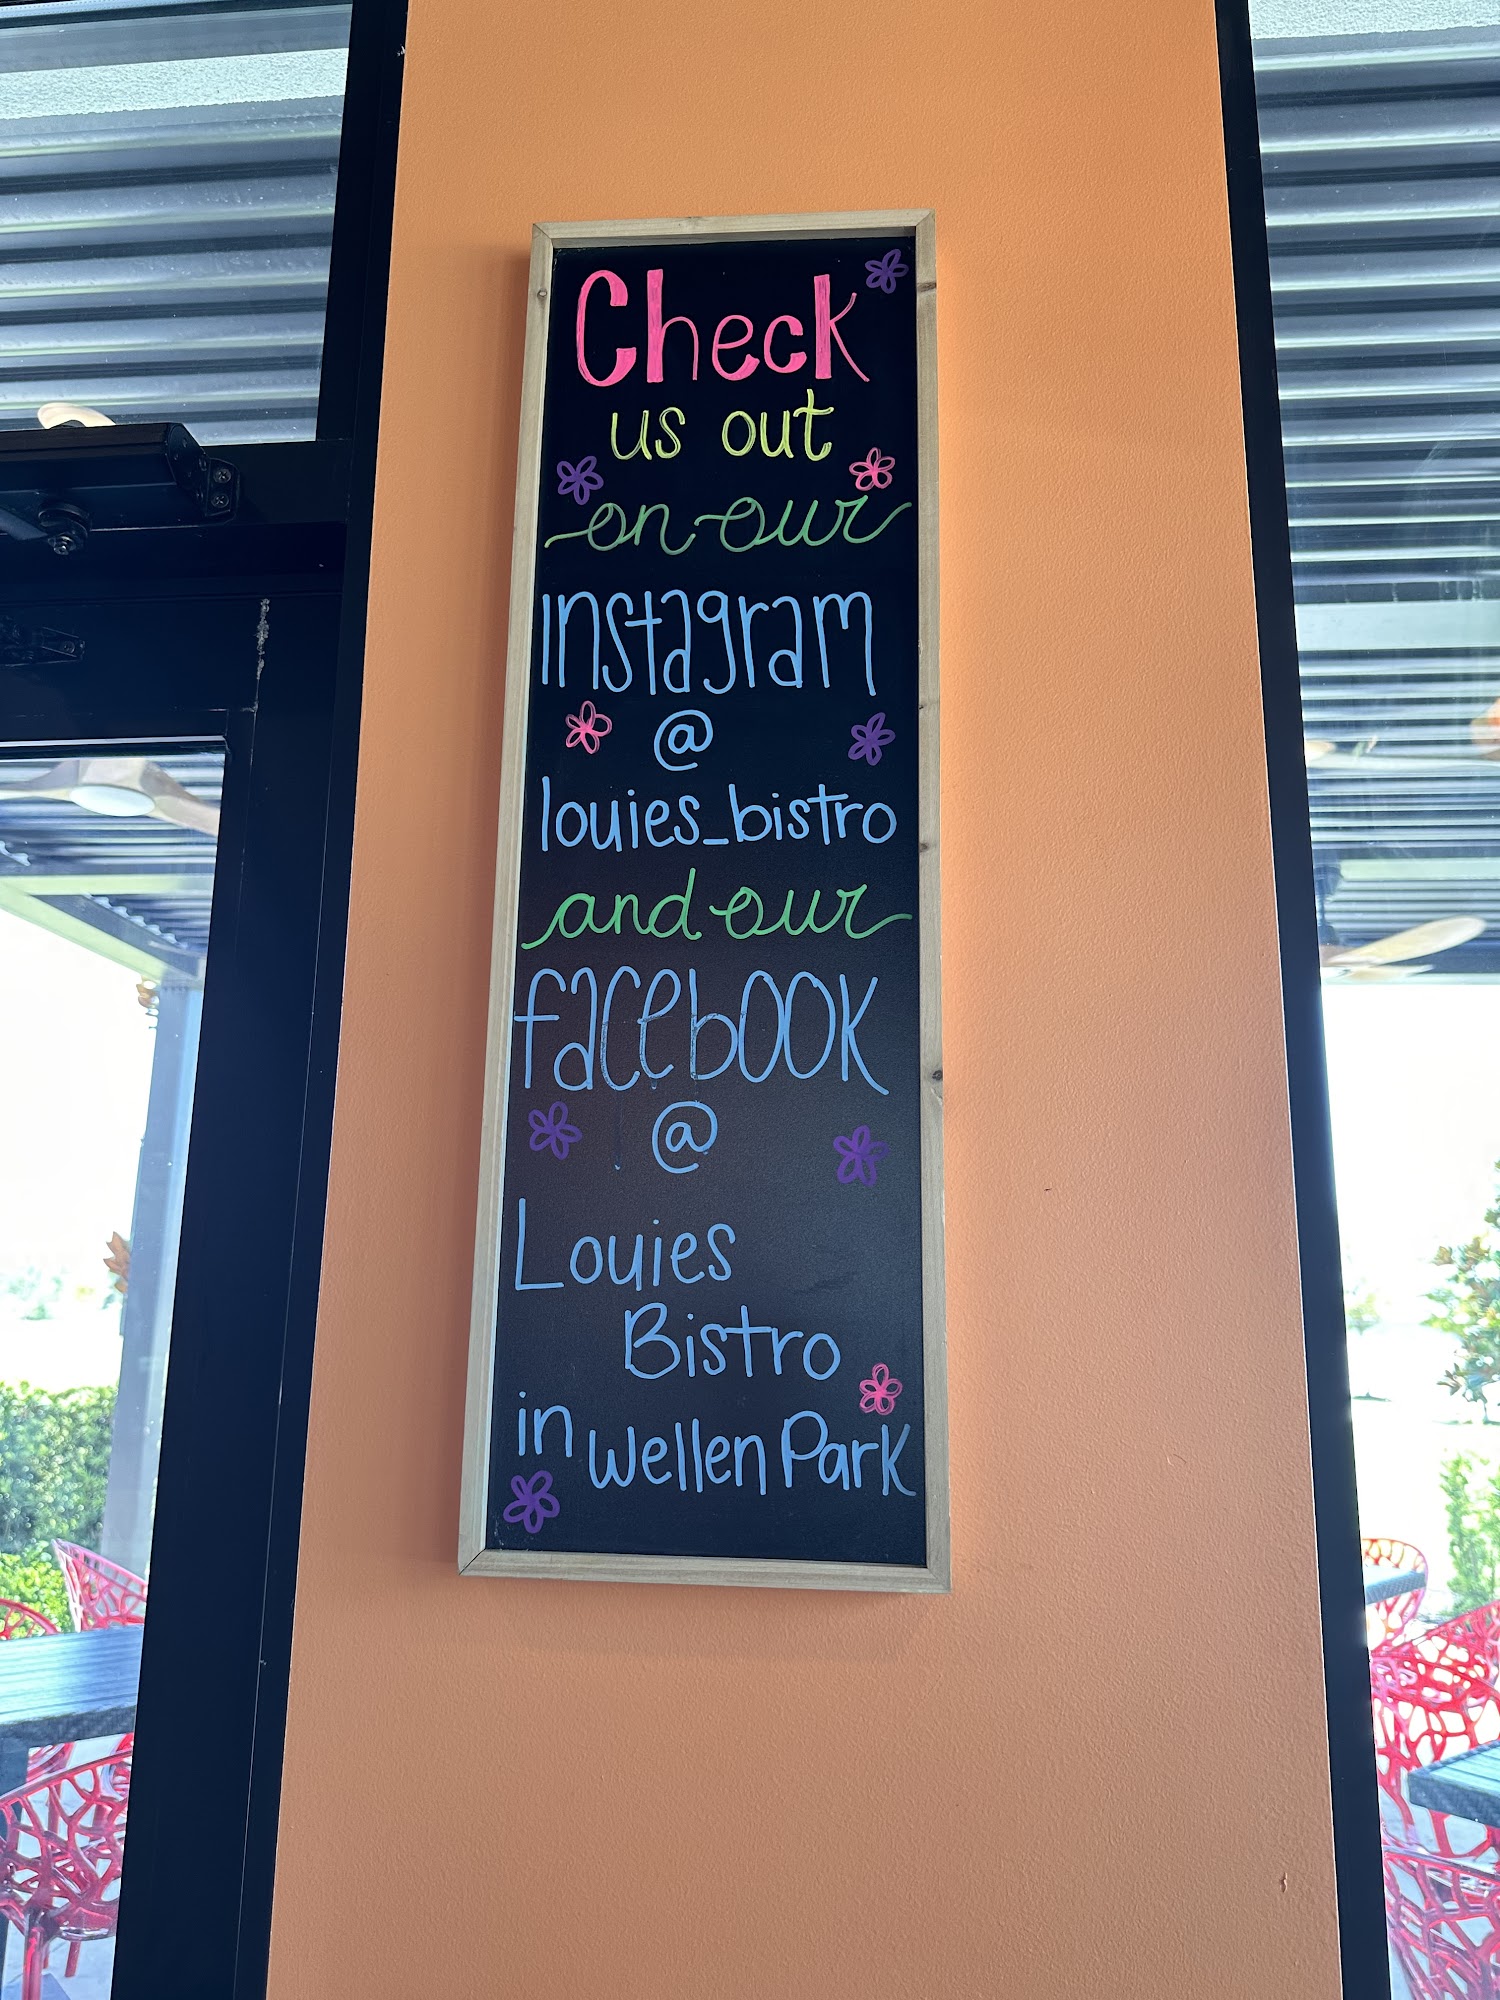 Check
us out
on our
Instagram
@
louies_bistro
and our
facebook
@
Louies
Bistro
in Wellen Park